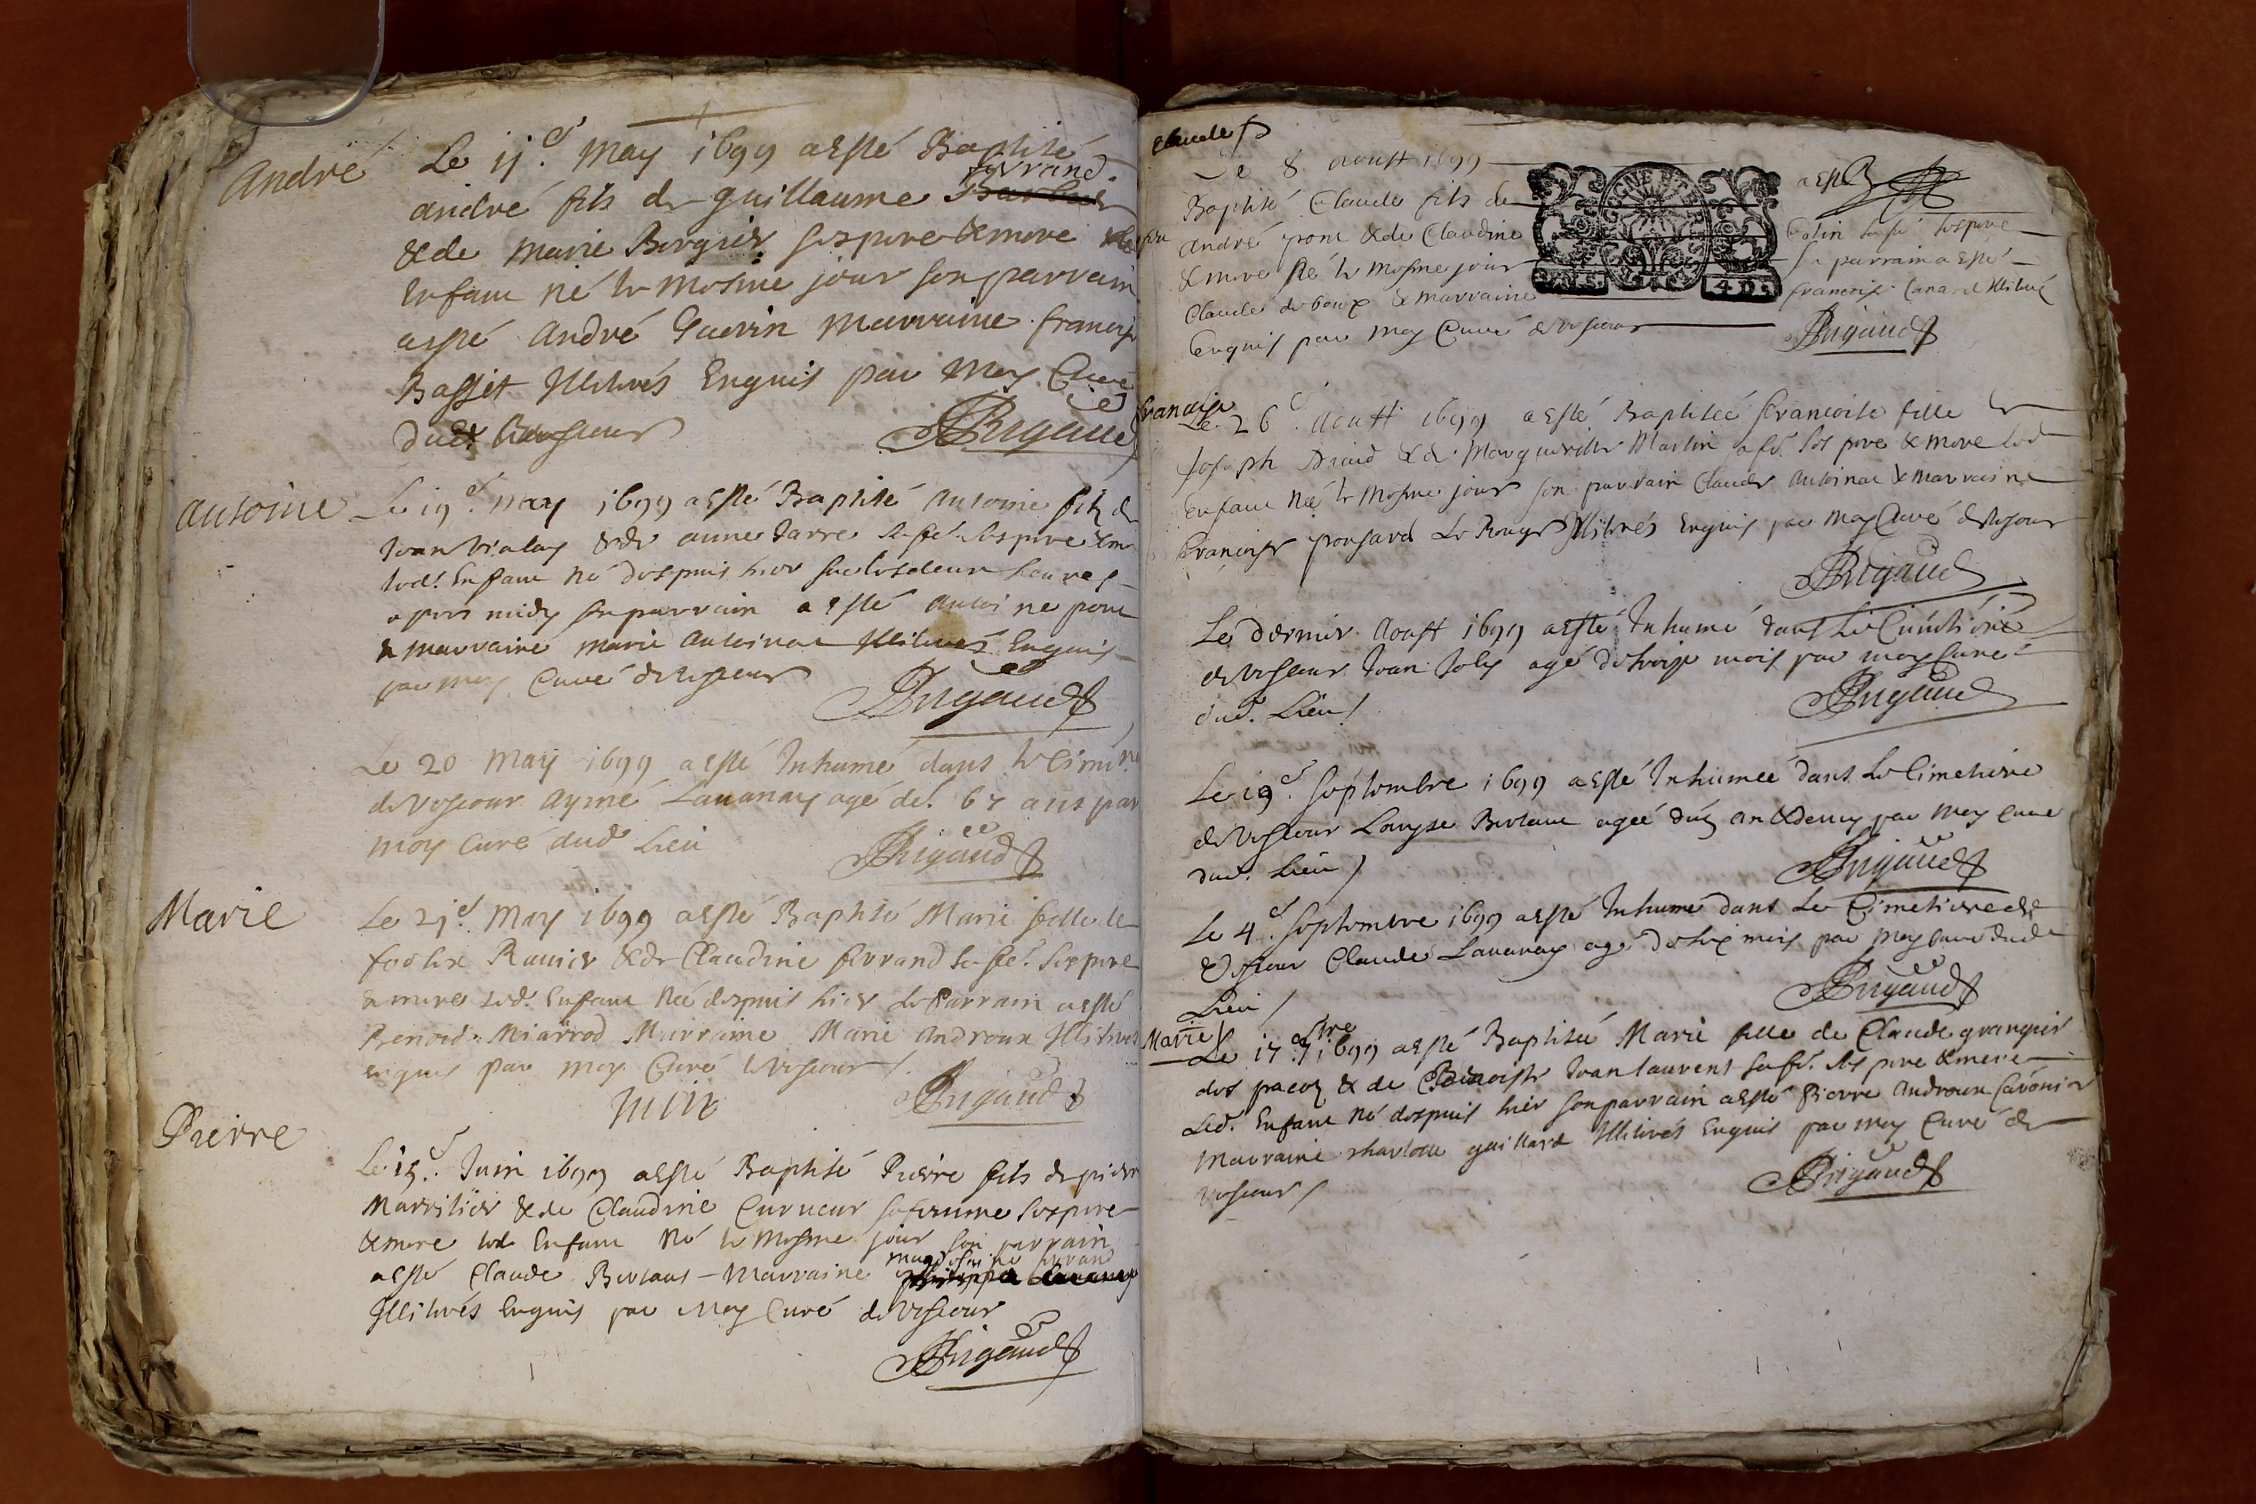 André
Le 11e May 1699 a esté Baptisé
ferrand
andré fils de guillaume
& de Marie Bergier ses pere & mere
Enfant né le mesme jour son parrain
a esté André Guerin marraine francoise
Basset Illiterés Enquis par Moy Curé
dud. Vesseour
Rigaud
Antoine
Le 19e May 1699 a esté Baptisé Antoine fils de
Jean Vialay & de anne Jarre sa fe. ses pere & me
led. Enfant né despuis hier sur les deux heures
apres midy son parrain a esté Antoine pont
& marraine Marie Antoinat Illiterés Enquis
par moy Curé de Vesseour
Rigaud
Le 20 May 1699 a esté Inhumé dans le Cimre
de Vesseour Aymé Lauanay agé de. 67 ans par
moy Curé dud Lieu
Rigaud
Marie
Le 21e May 1699 a esté Baptisé Marie fille de
Ravier & de Claudine ferrand sa fe. ses pere
& mere led. Enfant née despuis hier le Parrain a esté
Benoid Miarrod Marraine Marie Androux Illiteres
enquis par moy Curé Vesseour
Rigaud
Juin
Pierre
Le 15e. Juin 1699 a esté Baptisé Pierre fils de pierre
Marrilier & de Claudine Cureur sa femme ses pere
& mere led Enfant Né le Mesme jour son parrain
magdeleine ferrand
a esté Claude Bertaut Marraine
Illiterés Enquis par Moy Curé de Vesseour
Rigaud
Claude
Le 8 aoust 1699 a esté
Baptisé Claude fils de
André pont & de Claudine Colin sa fe ses pere
& mere né le Mesme jour Son parrain a esté
Claude de boux & marraine francoise Canard Illiteré
Enquis par Moy Curé de Vesseour
Rigaud
francoise
Le 26e. Aoust 1699 a esté Baptisée francoise fille de
Joseph & de Marguerite Martin sa fe. ses pere & mere led
Enfant Née le Mesme jour son parrain Claude Antoinat & marraine
francoise ponsard Le Rouge Illiterés Enquis par Moy Curé de Vesseour
Rigaud
Le dernier Aoust 1699 a esté Inhumé dans le Cimetiére
de Vesseour Jean Joly agé de treize mois par moy Curé
dud. Lieu
Rigaud
Le 19e. Septembre 1699 a esté Inhumée dans Le Cimetiere
de Vesseour Louyse Bertaut agée d'un an & demy par Moy Curé
dud. Lieu
Rigaud
Le 4e. Septembre 1699 a esté Inhumé dans Le Cimetiere de
Vesseour Claude Lauanay agé de six mois par Moy Curé dud
Lieu
Rigaud
Marie
Le 17 7bre 1699 a esté Baptisée Marie fille de Claude grangier
des pacoz & de Benoiste Jean laurent sa fe. ses pere & mere
Led. Enfant Né despuis hier son parrain a esté Pierre Androux
Marraine charlotte gaillard Illiterés Enquis par moy Curé de
Vesseour
Rigaud